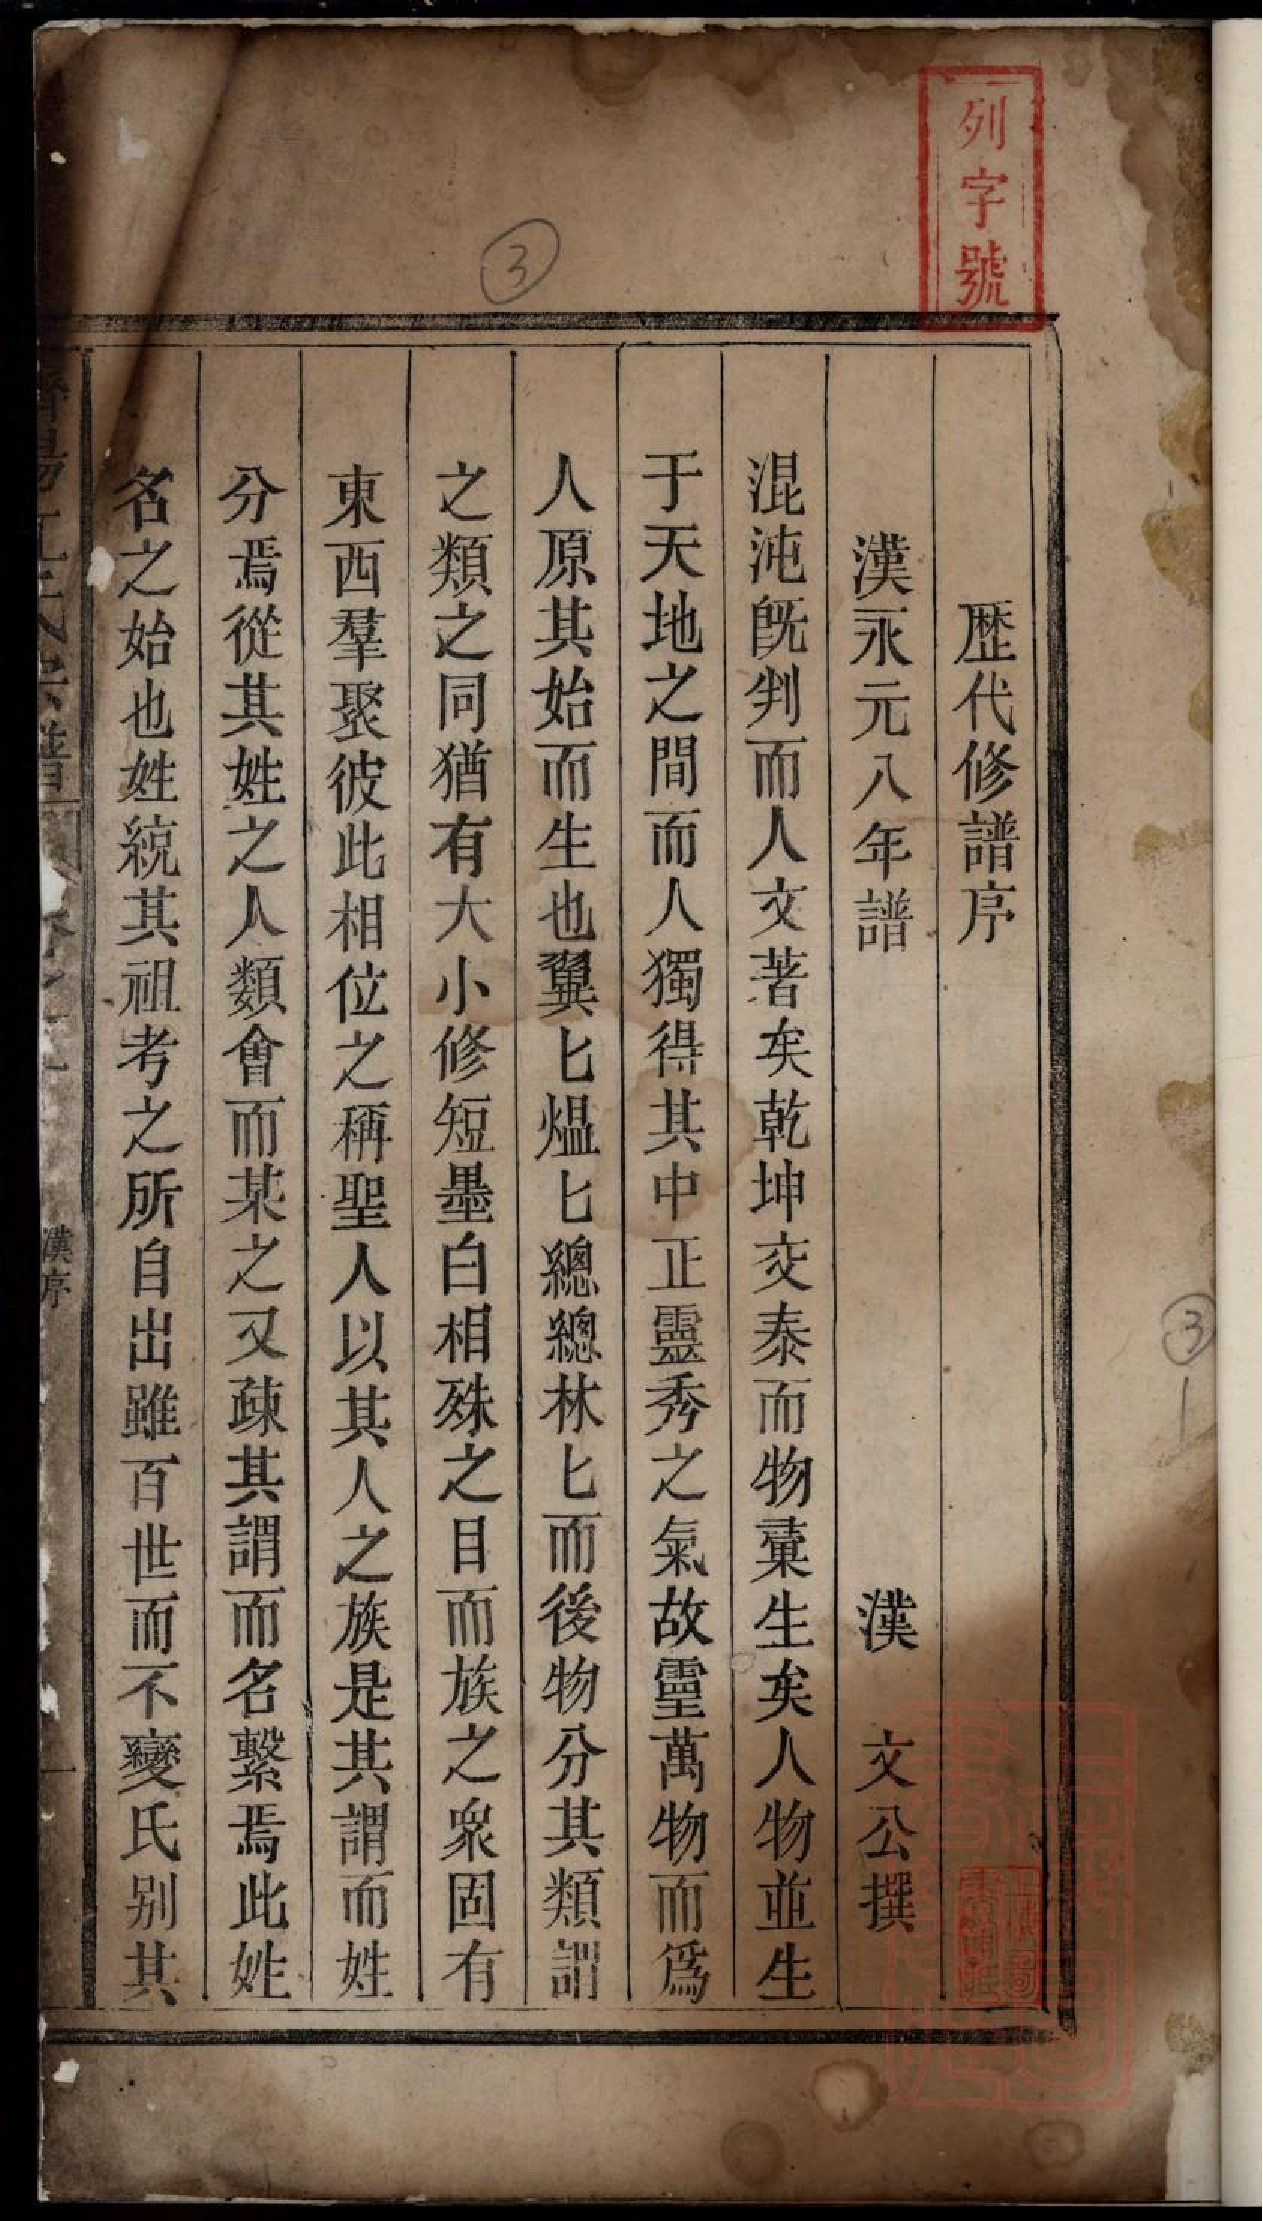 列字號
歴代修譜序
漢永元八年譜 漢 文公撰
混沌旣判而人文著矣乾坤交泰而物彙生矣人物並生
于天地之間而人獨得其中正靈秀之氣故靈萬物而爲
人原其始而生也翼匕熅匕總總林匕而後物分其類謂
之類之同猶有大小修短墨白相殊之目而族之衆固有
東西羣聚彼此相位之稱聖人以其人之族是其謂而姓
分焉從其姓之人類會而某之又疎其謂而名繫焉此姓
名之始也姓統其祖考之所自出雖百世而不變氏别其
漢序
一
③
③